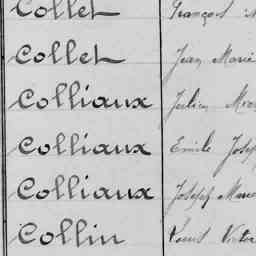 Collet François
Collet Jean Marie
Colliaux Julien
Colliaux Emile Josep
Colliaux Joseph Marie
Collin Louis Victor